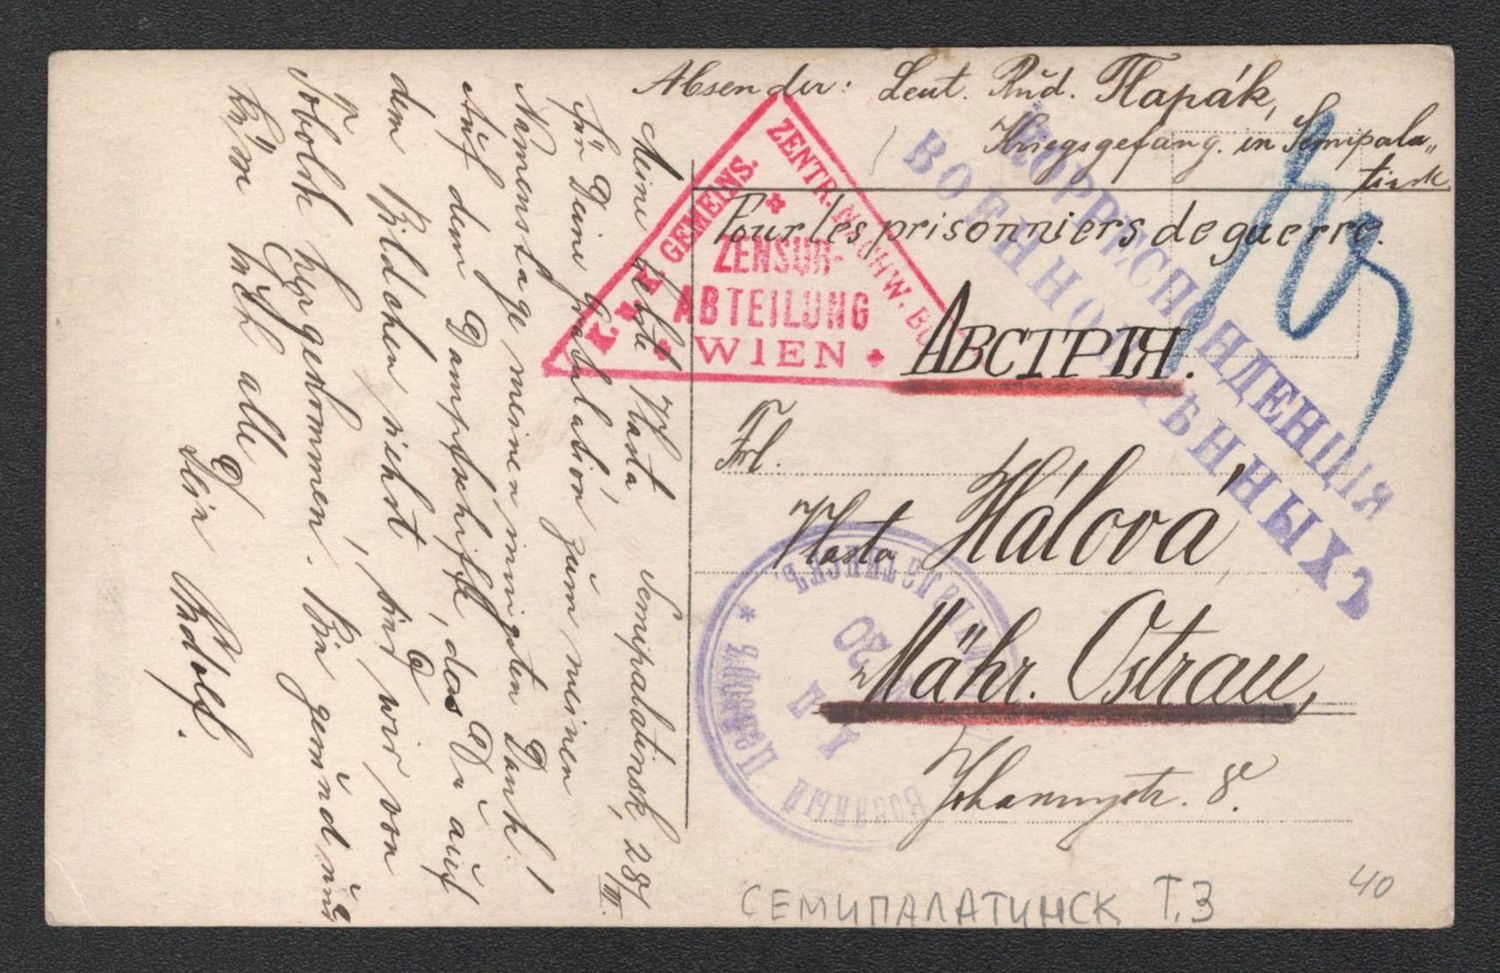 Absender: Leut. Rud. Tlapák,
Kriegsgefang. in Semipala„
tinsk
Pour les prisonniers de guerre.
КОРРЕСПОНДЕНЦІЯ
ВОЕННОПЛѢННЫХЪ
K. u. K. GEMEINS. ZENTR. NACHW. BU
ZENSUR-
ABTEILUNG
WIEN
АВСТРІЯ.
Frl.
Vlasta Hálová,
Mähr. Ostrau,
Johannystr. 8.
ВОЕННЫЙ ЦЕНЗОРЪ
Semipalatinsk, 28/
Meine liebe Vlasta,
für Deine Gratulation zum meinen
Namenstage meinen innigsten Dank!
Auf dem Dampfschiff, das Du auf
dem Bildchen siehst, sind wir von
Tobolsk hergekommen. Bin gesund und
küsse euch alle
Dein Rudolf.
СЕМИПАЛАТИНСК Т.3
40